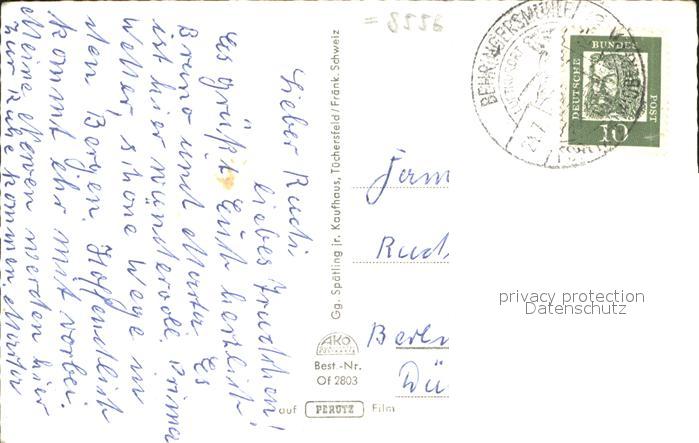 = 8556
Lieber Rudi,
liebes Trudchen!
Es grüßt Euch herzlich,
Bruno und Marta. Es
ist hier wundervoll. Prima
Wetter, schöne Wege in
den Bergen. Hoffentlich
kommt ihr mit vorbei.
Meine Nerven werden hier
zur Ruhe kommen Marta
Gg. Spätling jr. Kaufhaus, Tüchersfeld/Fränk. Schweiz
AKO
Best.-Nr.
Of 2803
auf PERUTZ Film
BEHRINGERSMÜHLE
DEUTSCHE BUNDESPOST
10
Fam
Rud
Berl
privacy protection
Datenschutz